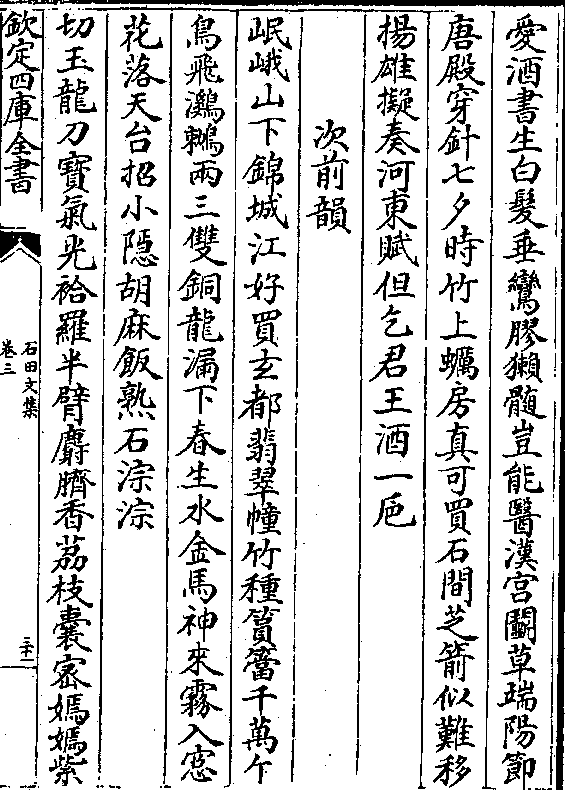 愛酒書生白髮垂鸞膠獺髓豈能醫漢宫鬭草端陽節
唐殿穿針七夕時竹上蠣房真可買石間芝箭似難移
揚雄擬奏河東賦但乞君王酒一巵
次前韻
岷峨山下錦城江好買玄都翡翠幢竹種篔簹千萬个
鳥飛鸂鶒兩三雙銅龍漏下春生水金馬神來霧入窓
花落天台招小隱胡麻飯熟石淙淙
切玉龍刀寶氣光袷羅半臂麝臍香荔枝囊宻嫣嫣紫
欽定四庫全書
石田文集
卷三